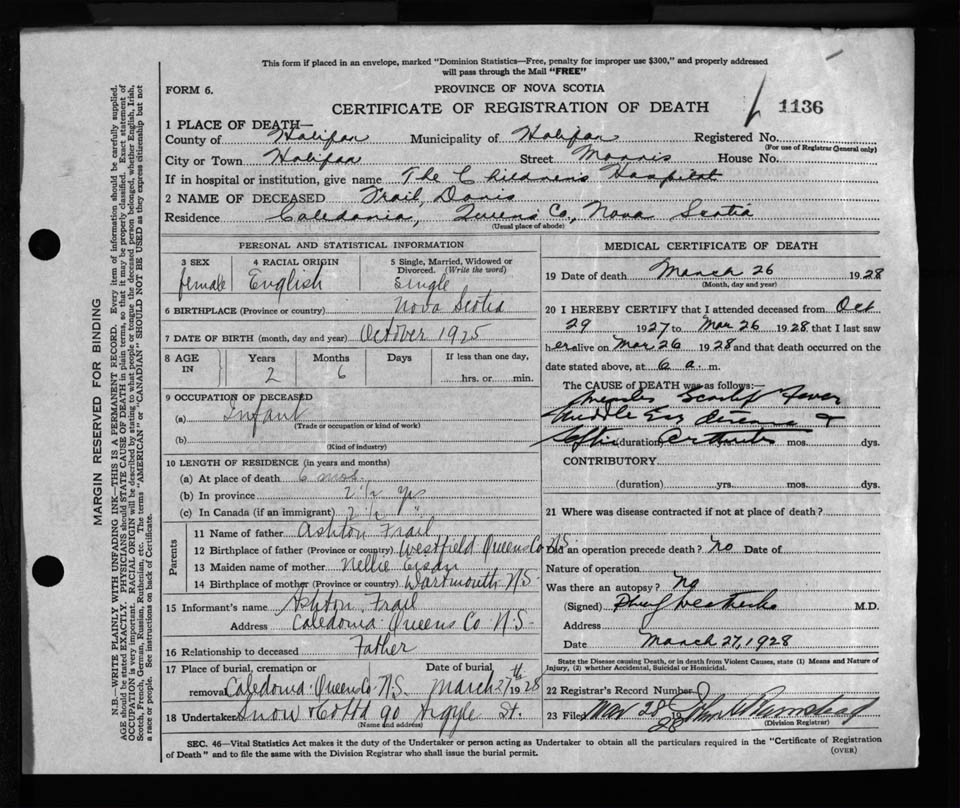 This form if placed in an envelope, marked "Dominion Statistics—Free, penalty for improper use $300," and properly addressed
will pass through the Mail "FREE"
FORM 6.
PROVINCE OF NOVA SCOTIA
CERTIFICATE OF REGISTRATION OF DEATH
1136
1 PLACE OF DEATH—
County of Halifax Municipality of Halifax Registered No.
(For use of Registrar General only)
City or Town Halifax Street Morris House No.
If in hospital or institution, give name The Childrens Hospital
2 NAME OF DECEASED Frail, Doris
Residence Caledonia, Queens Co, Nova Scotia
(Usual place of abode)
PERSONAL AND STATISTICAL INFORMATION
3 SEX 4 RACIAL ORIGIN 5 Single, Married, Widowed or
Divorced. (Write the word)
female English Single
6 BIRTHPLACE (Province or country) Nova Scotia
7 DATE OF BIRTH (month, day and year) October 1925
8 AGE IN Years Months Days If less than one day,
2 6 hrs. or min.
9 OCCUPATION OF DECEASED
(a) Infant
(Trade or occupation or kind of work)
(b)
(Kind of industry)
10 LENGTH OF RESIDENCE (in years and months)
(a) At place of death 6 mos.
(b) In province 2 1/2 yrs
(c) In Canada (if an immigrant) 2 1/2 "
Parents
11 Name of father Ashton Frail
12 Birthplace of father (Province or country) Westfield Queens Co N.S.
13 Maiden name of mother Nellie
14 Birthplace of mother (Province or country) Dartmouth N.S-
15 Informant's name Ashton Frail
Address Caledonia Queens Co N-S-
16 Relationship to deceased Father
17 Place of burial, cremation or Date of burial,
removal Caledonia Queen Co N.S. March 27th 1928
18 Undertaker Snow & Co Ltd 90 Argyle St.
(Name and address)
MEDICAL CERTIFICATE OF DEATH
19 Date of death March 26 1928
(Month, day and year)
20 I HEREBY CERTIFY that I attended deceased from Oct
29 1927 to Mar 26 1928 that I last saw
her alive on Mar 26 1928 and that death occurred on the
date stated above, at 6 a. m.
The CAUSE of DEATH was as follows:—
Measles Scarlet Fever
Middle Ear &
Septic (duration) Arthritis mos. dys.
CONTRIBUTORY
(duration) yrs. mos. dys.
21 Where was disease contracted if not at place of death?
Did an operation precede death? No Date of
Nature of operation
Was there an autopsy? No
(Signed) M.D.
Address
Date March 27, 1928
State the Disease causing Death, or in death from Violent Causes, state (1) Means and Nature of
Injury, (2) whether Accidental, Suicidal or Homicidal.
22 Registrar's Record Number
23 Filed Mar 28 28
(Division Registrar)
SEC. 46—Vital Statistics Act makes it the duty of the Undertaker or person acting as Undertaker to obtain all the particulars required in the "Certificate of Registration
of Death" and to file the same with the Division Registrar who shall issue the burial permit.
(OVER)
MARGIN RESERVED FOR BINDING
N.B.—WRITE PLAINLY WITH UNFADING INK—THIS IS A PERMANENT RECORD. Every item of information should be carefully supplied.
AGE should be stated EXACTLY. PHYSICIANS should STATE CAUSE OF DEATH in plain terms, so that it may be properly classified. Exact statement of
OCCUPATION is very important. RACIAL ORIGIN will be described by stating to what people or tongue the deceased person belonged, whether English, Irish,
Scotch, French, German, Russian, Ruthenian, etc. The terms "AMERICAN" or "CANADIAN" SHOULD NOT BE USED as they express citizenship but not
a race or people. See instructions on back of Certificate.